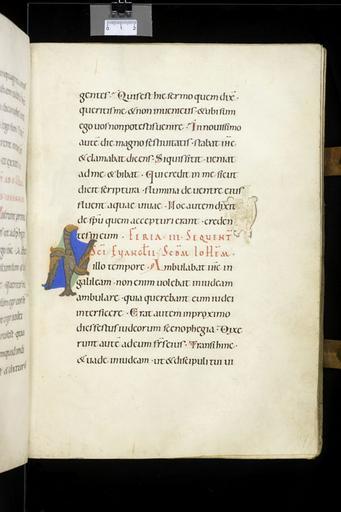 gentes · Quis est hic sermo quem dix̄
queritis me · & non invenietis · & ubi sum
ego vos non potestis venire · In novissimo
autē die magno festivitatis · stabat ih̄c
& clamabat dicens · Si quis sitit · veniat
ad me & bibat · Qui credit in me · sicut
dicit scriptura · flumina de ventre eius
fluent aquae vivae · Hoc autem dixit
de sp̄u quem accepturi erant · creden
tes in eum · FERIA · III · SEQUENT̄
SCI EVANGLII · SCDM IOHEM
In illo tempore · Ambulabat ih̄c in
galileam · non enim volebat in iudeam
ambulare · quia querebant eum iudei
interficere · Erat autem in proximo
dies festus iudeorum scenophegia · Dixe
runt autē ad eum fr̄s eius · Transi hinc ·
& vade in iudeam · ut & discipuli tui vi